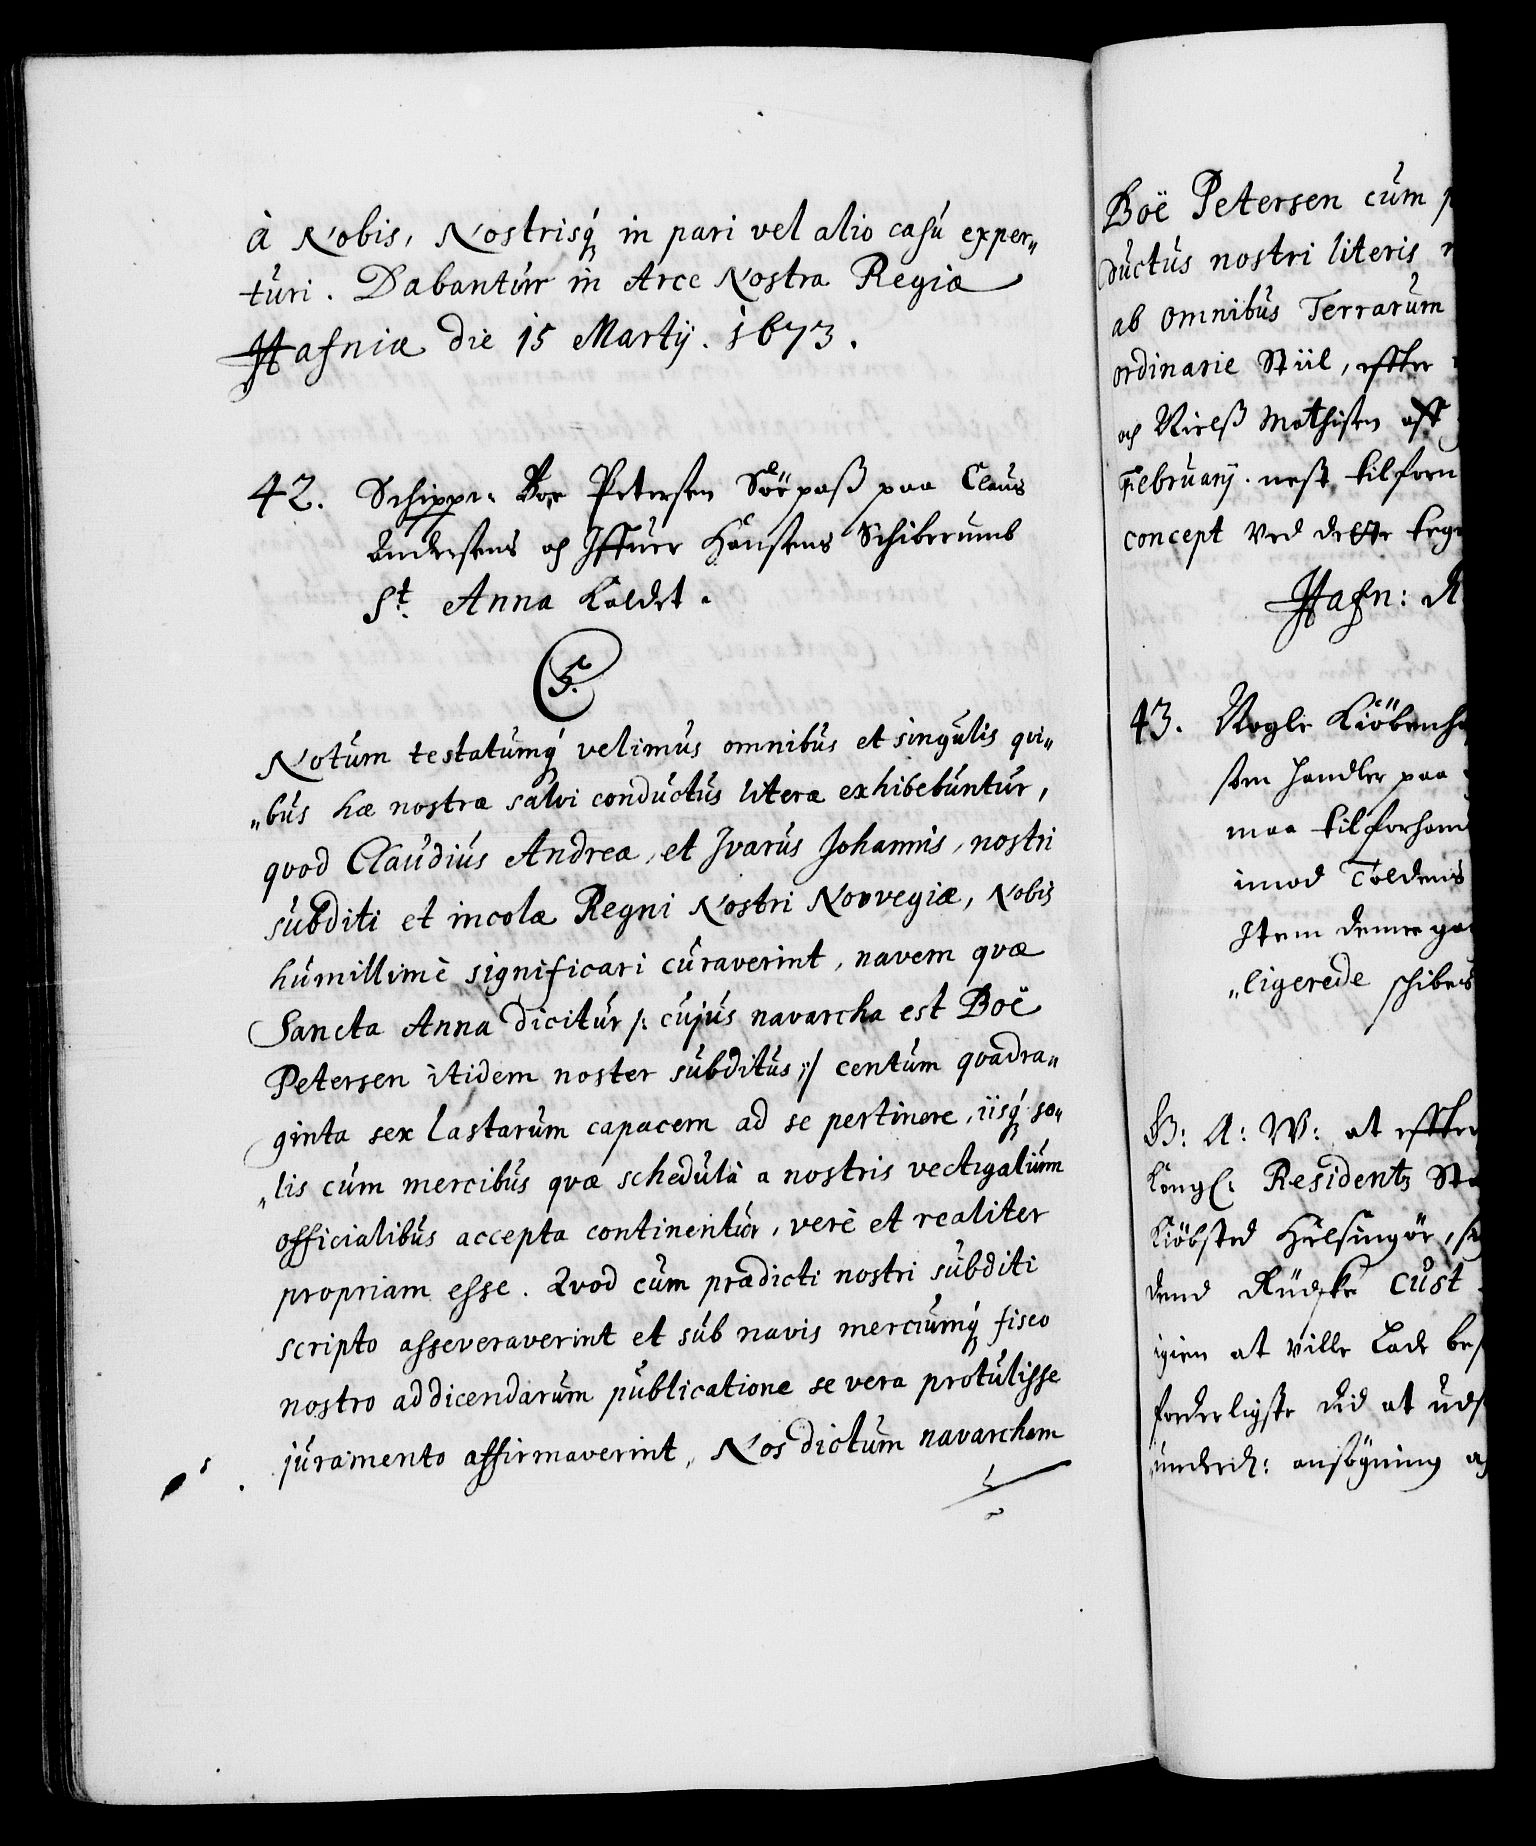 à Nobis, Nostrisq́ in pari vel alio casú exper„
túri. Dabantúr in Arce Nostra Regia
Hafniæ die 15 Martij. 1673.
42. Schipper Boe Petersen Söe pass paa Claus
Andersens oc Iffuer Hansens Schiberumb
St. Anna kaldet.
C5.
Notúm testatúmq́ velimús omnibús et singúlis qvi„
„bús hæ nostræ salvi condúctús literæ exhibebúntúr,
qvod Claúdiús Andreæ, et Ivarús Johannis, nostri
súbditi et incolæ Regni Nostri Norvegiæ, Nobis
húmillimè significari cúraverint, navem qvæ
Sancta Anna dicitúr /: cújús navarcha est Boë
Petersen itidem noster súbditús :/ centúm qvadra„
ginta sex lastarúm capacem ad se pertinere, iisq́ so„
„lis cúm mercibús qvæ schedúlà a nostris vectigaliúm
officialibús accepta continentúr, verè et realiter
propriam esse. Qvod cúm prædicti nostri súbditi
scripto asseveraverint et súb navis merciúmq́ fisco
nostro addicendarúm públicatione se vera protúlisse
júramento affirmaverint, Nos dictúm navarcham
Boë Petersen cúm
dúctús nostri literis
ab omnibús Terrarúm
ordinarie Stiil, effter
oc Nielss Mathisen aff
Febrúarij. nest tilforn
concept ved dette
Hafn:
43. Nogle Kiöbenh
som handler paa
maa tilforhand
imod Toldens
Item denne
„ligerede schibes
G: A: W: at effter
Kongl: Residentz
Kiöbsted Helsingör,
dend Rúdske Cúst
igien at ville Lade
forderligste did at úds
únderd: ansögning